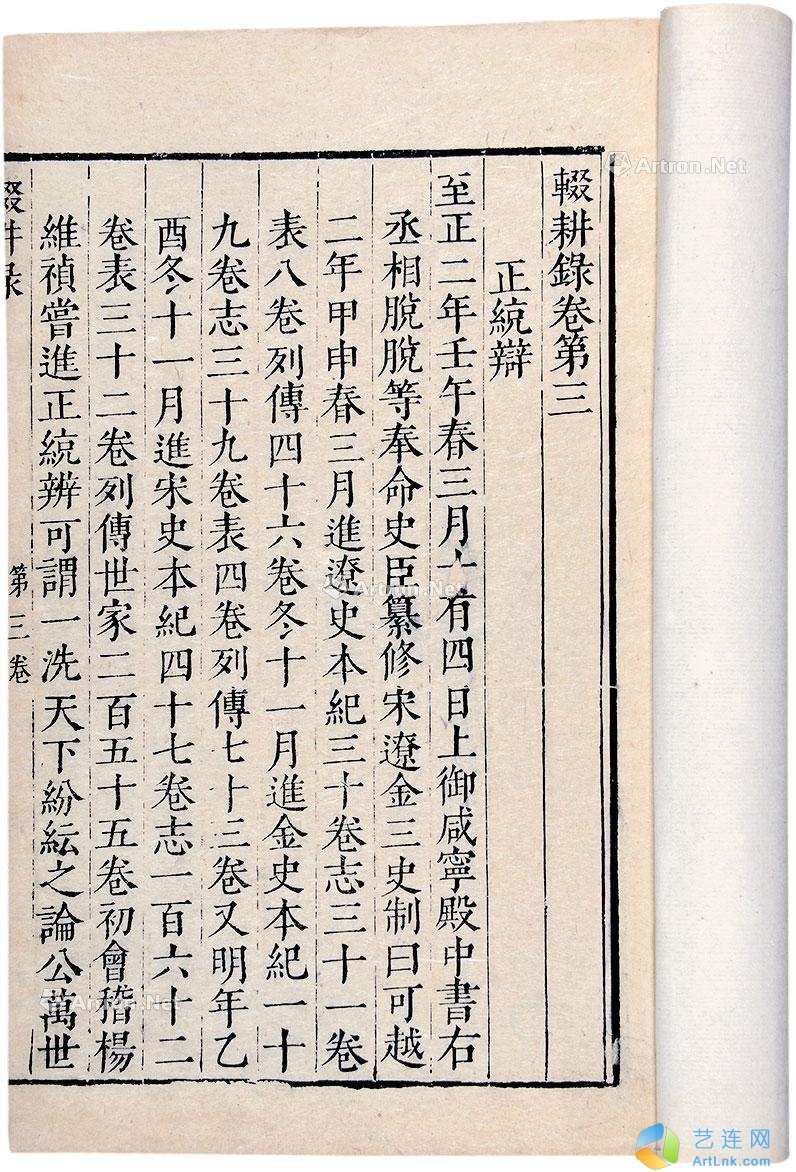 輟耕錄卷第三
正統辯
至正二年壬午春三月十有四日上御咸寧殿中書右
丞相脫脫等奉命史臣纂修宋遼金三史制曰可越
二年甲申春三月進遼史本紀三十卷志三十一卷
表八卷列傳四十六卷冬十一月進金史本紀一十
九卷志三十九卷表四卷列傳七十三卷又明年乙
酉冬十一月進宋史本紀四十七卷志一百六十二
卷表三十二卷列傳世家二百五十五卷初會稽楊
維禎嘗進正統辨可謂一洗天下紛紜之論公萬世
第三卷
Artron.Net
Artron.Net
Artron.Net
艺连网
ArtLnk.com